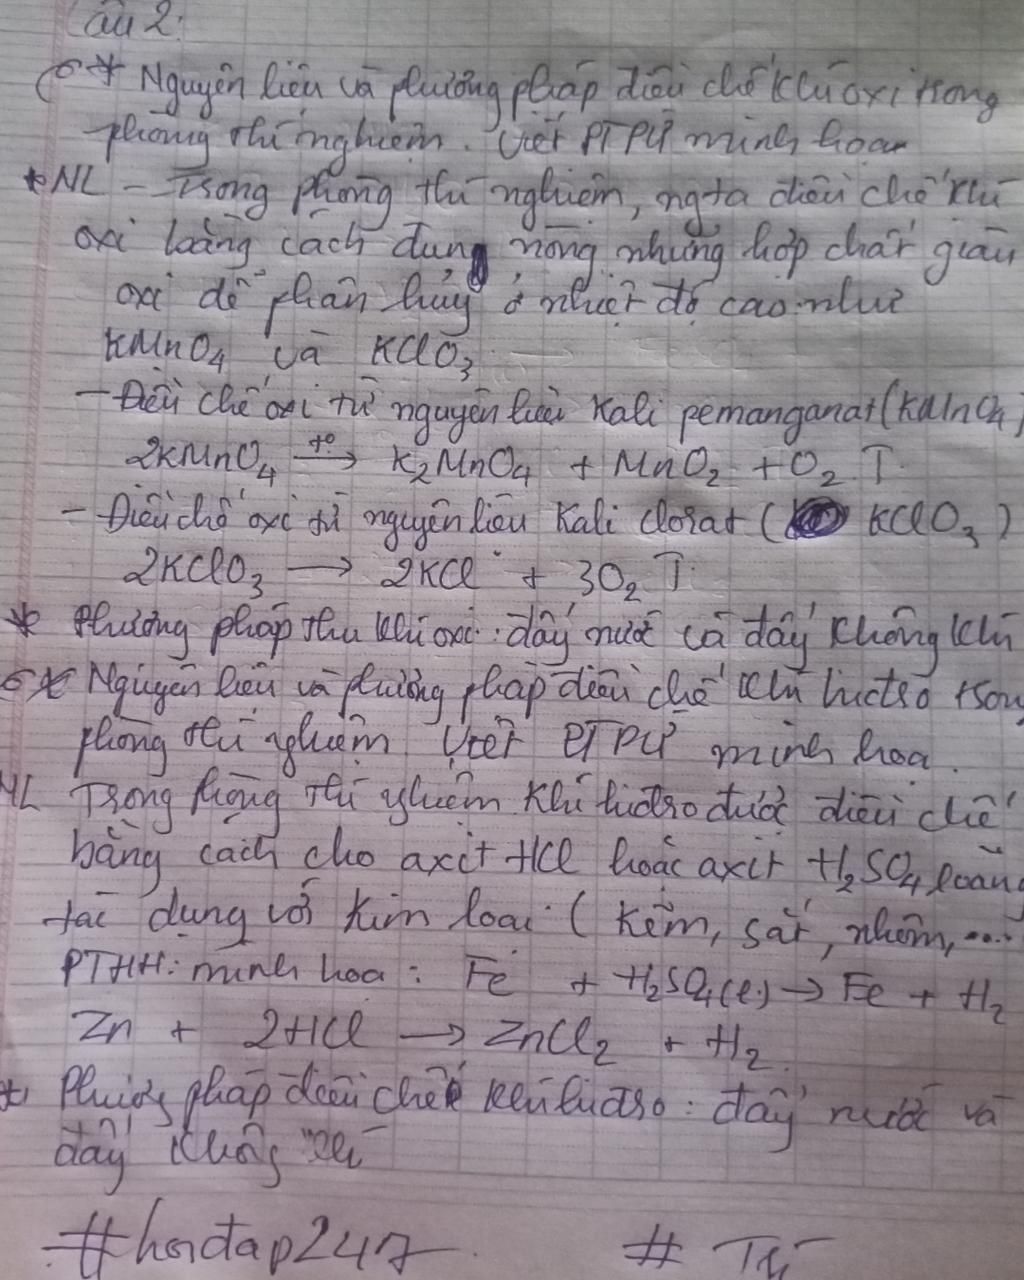 Câu 2:
* Nguyên liệu và phương pháp điều chế khí oxi trong
phòng thí nghiệm. Viết PTPƯ minh hoạ
* NL - Trong phòng thí nghiệm, ngta điều chế khí
oxi bằng cách đun nóng những hợp chất giàu
oxi dễ phân hủy ở nhiệt độ cao như
KMnO4 và KClO3
- Điều chế oxi từ nguyên liệu Kali pemanganat (KMnO4)
2KMnO4 →(t°) K2MnO4 + MnO2 + O2 ↑
- Điều chế oxi từ nguyên liệu Kali clorat ( KClO3 )
2KClO3 → 2KCl + 3O2 ↑
* Phương pháp thu khí oxi: đẩy nước và đẩy không khí
* Nguyên liệu và phương pháp điều chế khí hiđro trong
phòng thí nghiệm. Viết PTPƯ minh hoạ.
NL Trong phòng thí nghiệm khí hiđro được điều chế
bằng cách cho axit HCl hoặc axit H2SO4 loãng
tác dụng với kim loại (kẽm, sắt, nhôm, ...
PTHH: minh hoạ: Fe + H2SO4(l) → Fe + H2
Zn + 2HCl → ZnCl2 + H2.
* Phương pháp điều chế khí hiđro: đẩy nước và
đẩy không khí
#hoidap247 #